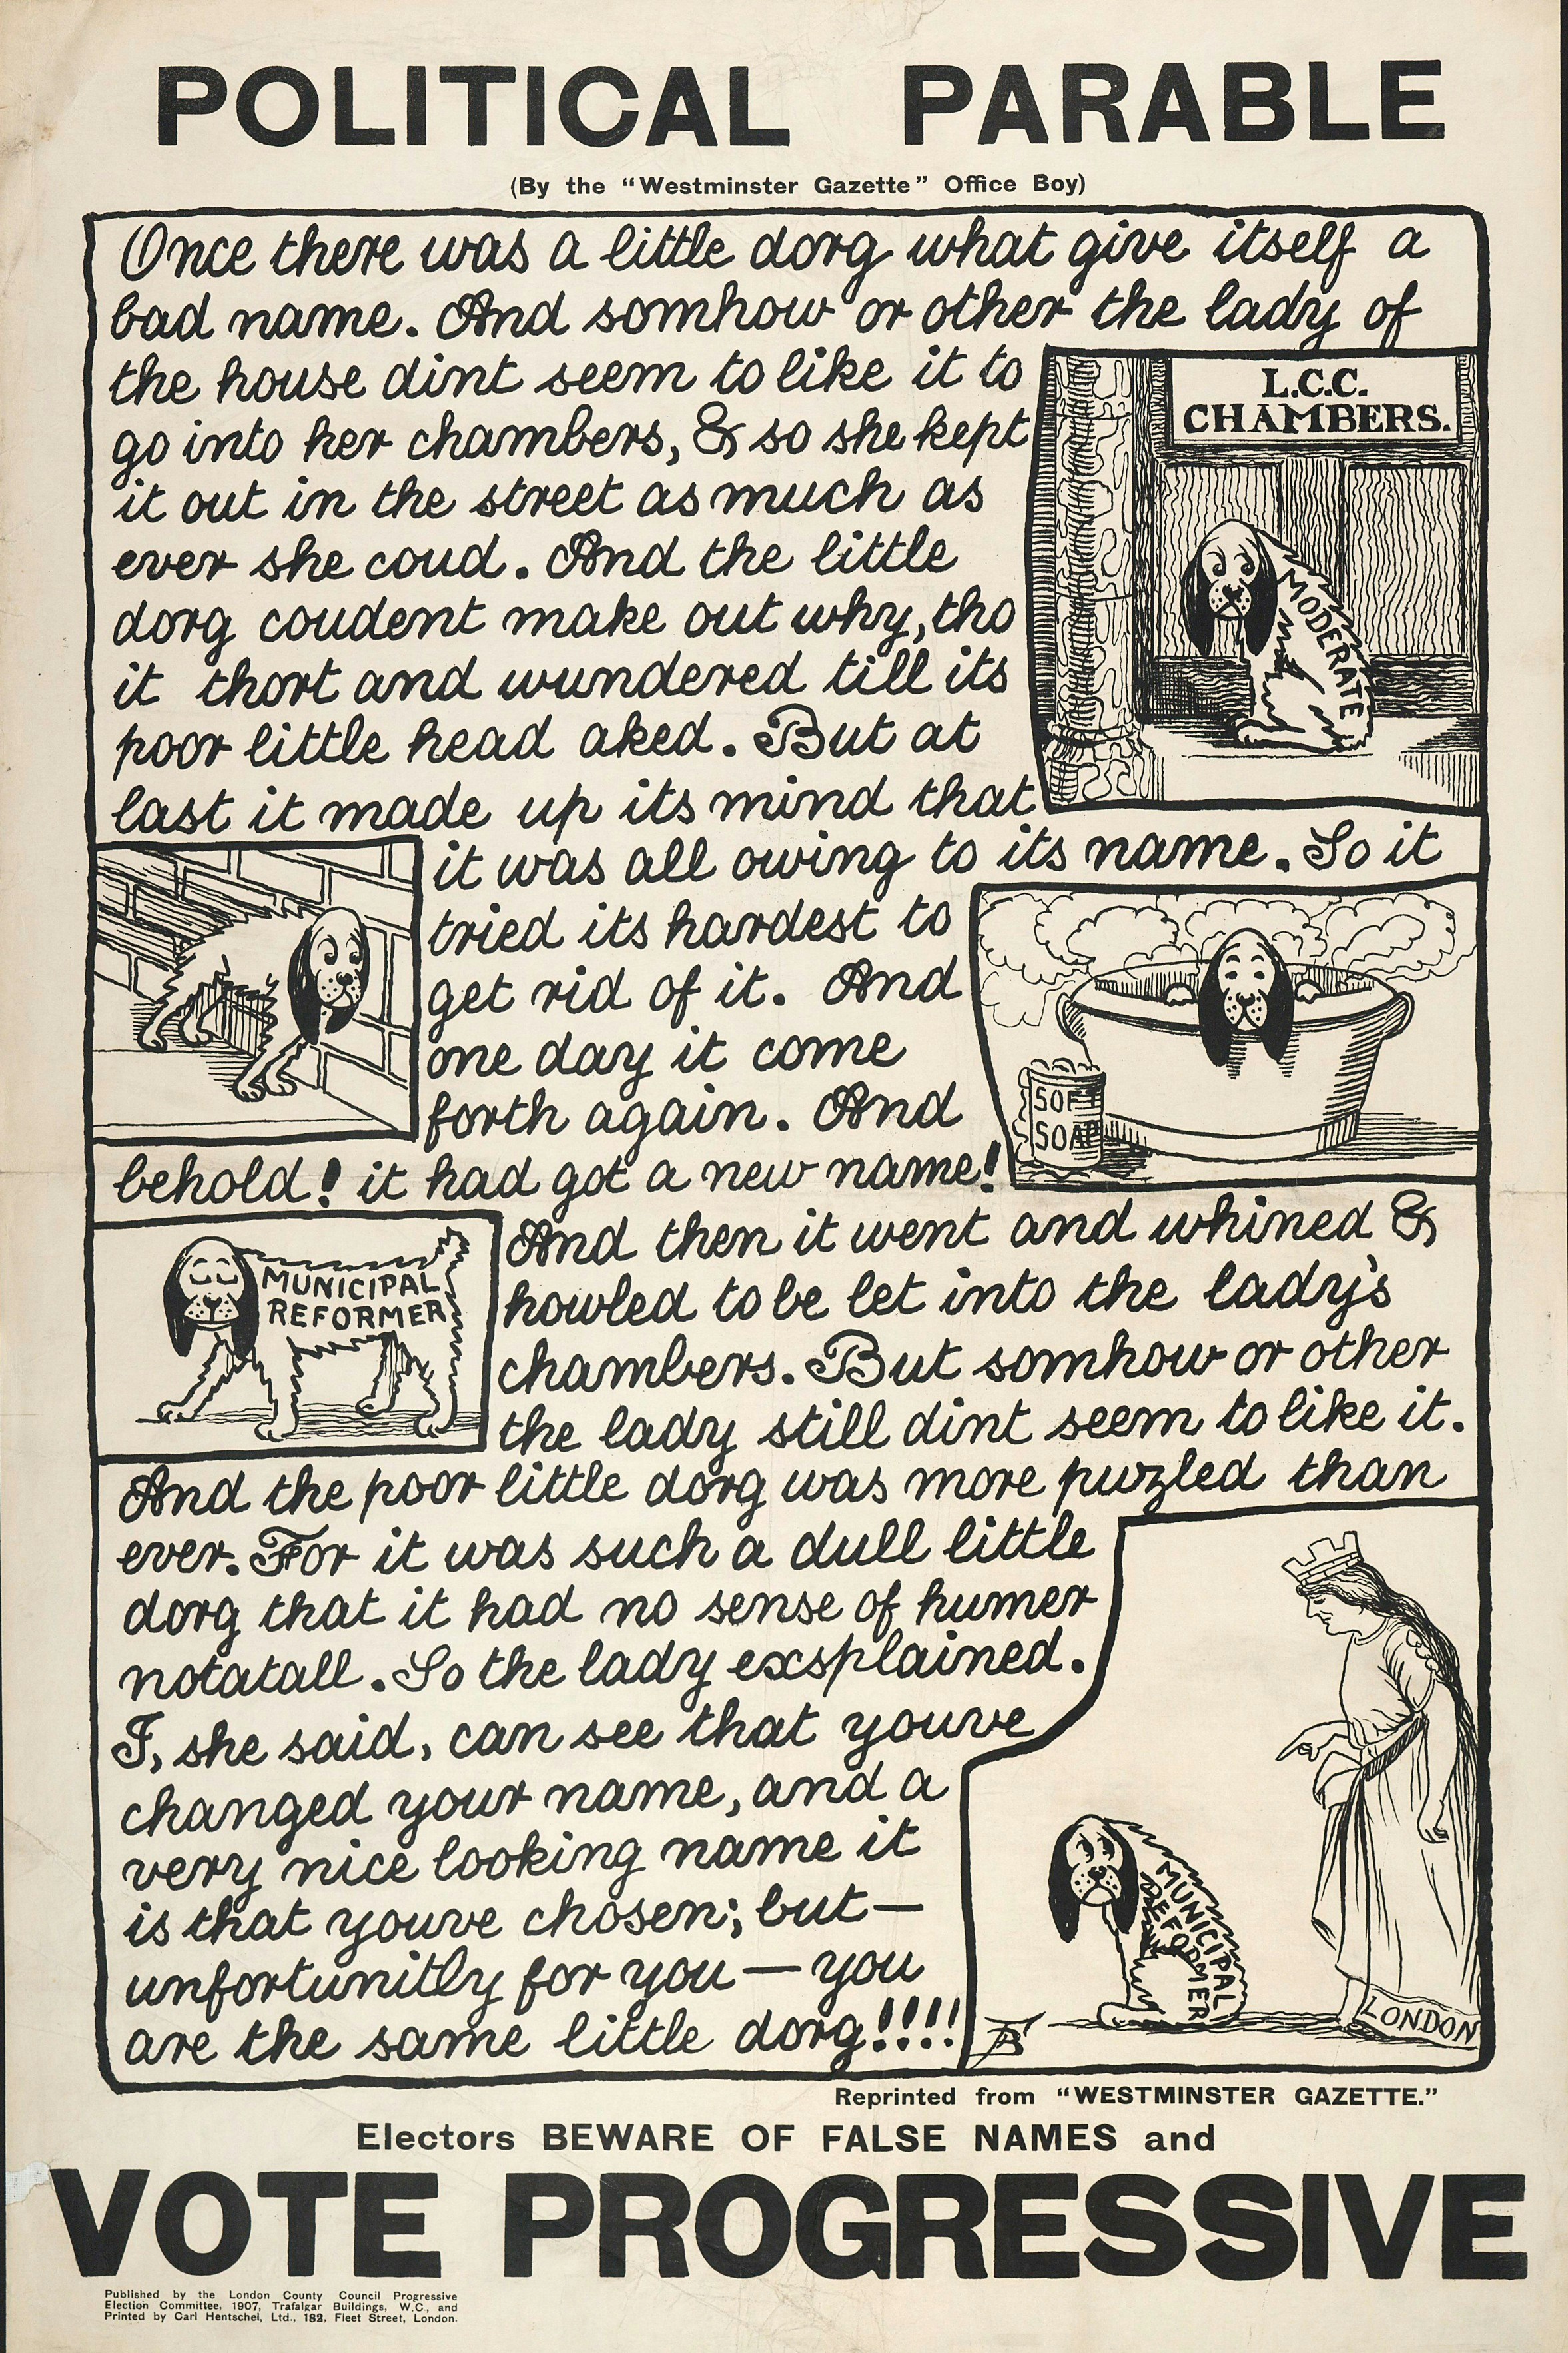 POLITICAL PARABLE
(By the “Westminster Gazette” Office Boy)
Once there was a little dorg what give itself a
bad name. And somhow or other the lady of
the house dint seem to like it to
go into her chambers, & so she kept
it out in the street as much as
ever she coud. And the little
dorg coudent make out why, tho
it thort and wundered till its
poor little head aked. But at
last it made up its mind that
L.C.C.
CHAMBERS.
MODERATE
it was all owing to its name. So it
tried its hardest to
get rid of it. And
one day it come
forth again. And
behold! it had got a new name!
SOFT
SOAP
MUNICIPAL
REFORMER
And then it went and whined &
howled to be let into the lady's
chambers. But somhow or other
the lady still dint seem to like it.
And the poor little dorg was more puzled than
ever. For it was such a dull little
dorg that it had no sense of humer
notatall. So the lady exsplained.
I, she said, can see that youve
changed your name, and a
very nice looking name it
is that youve chosen; but—
unfortunitly for you — you
are the same little dorg!!!!
MUNICIPAL
REFORMER
LONDON
Reprinted from “WESTMINSTER GAZETTE.”
Electors BEWARE OF FALSE NAMES and
VOTE PROGRESSIVE
Published by the London County Council Progressive
Election Committee, 1907, Trafalgar Buildings, W.C., and
Printed by Carl Hentschel, Ltd., 182, Fleet Street, London.